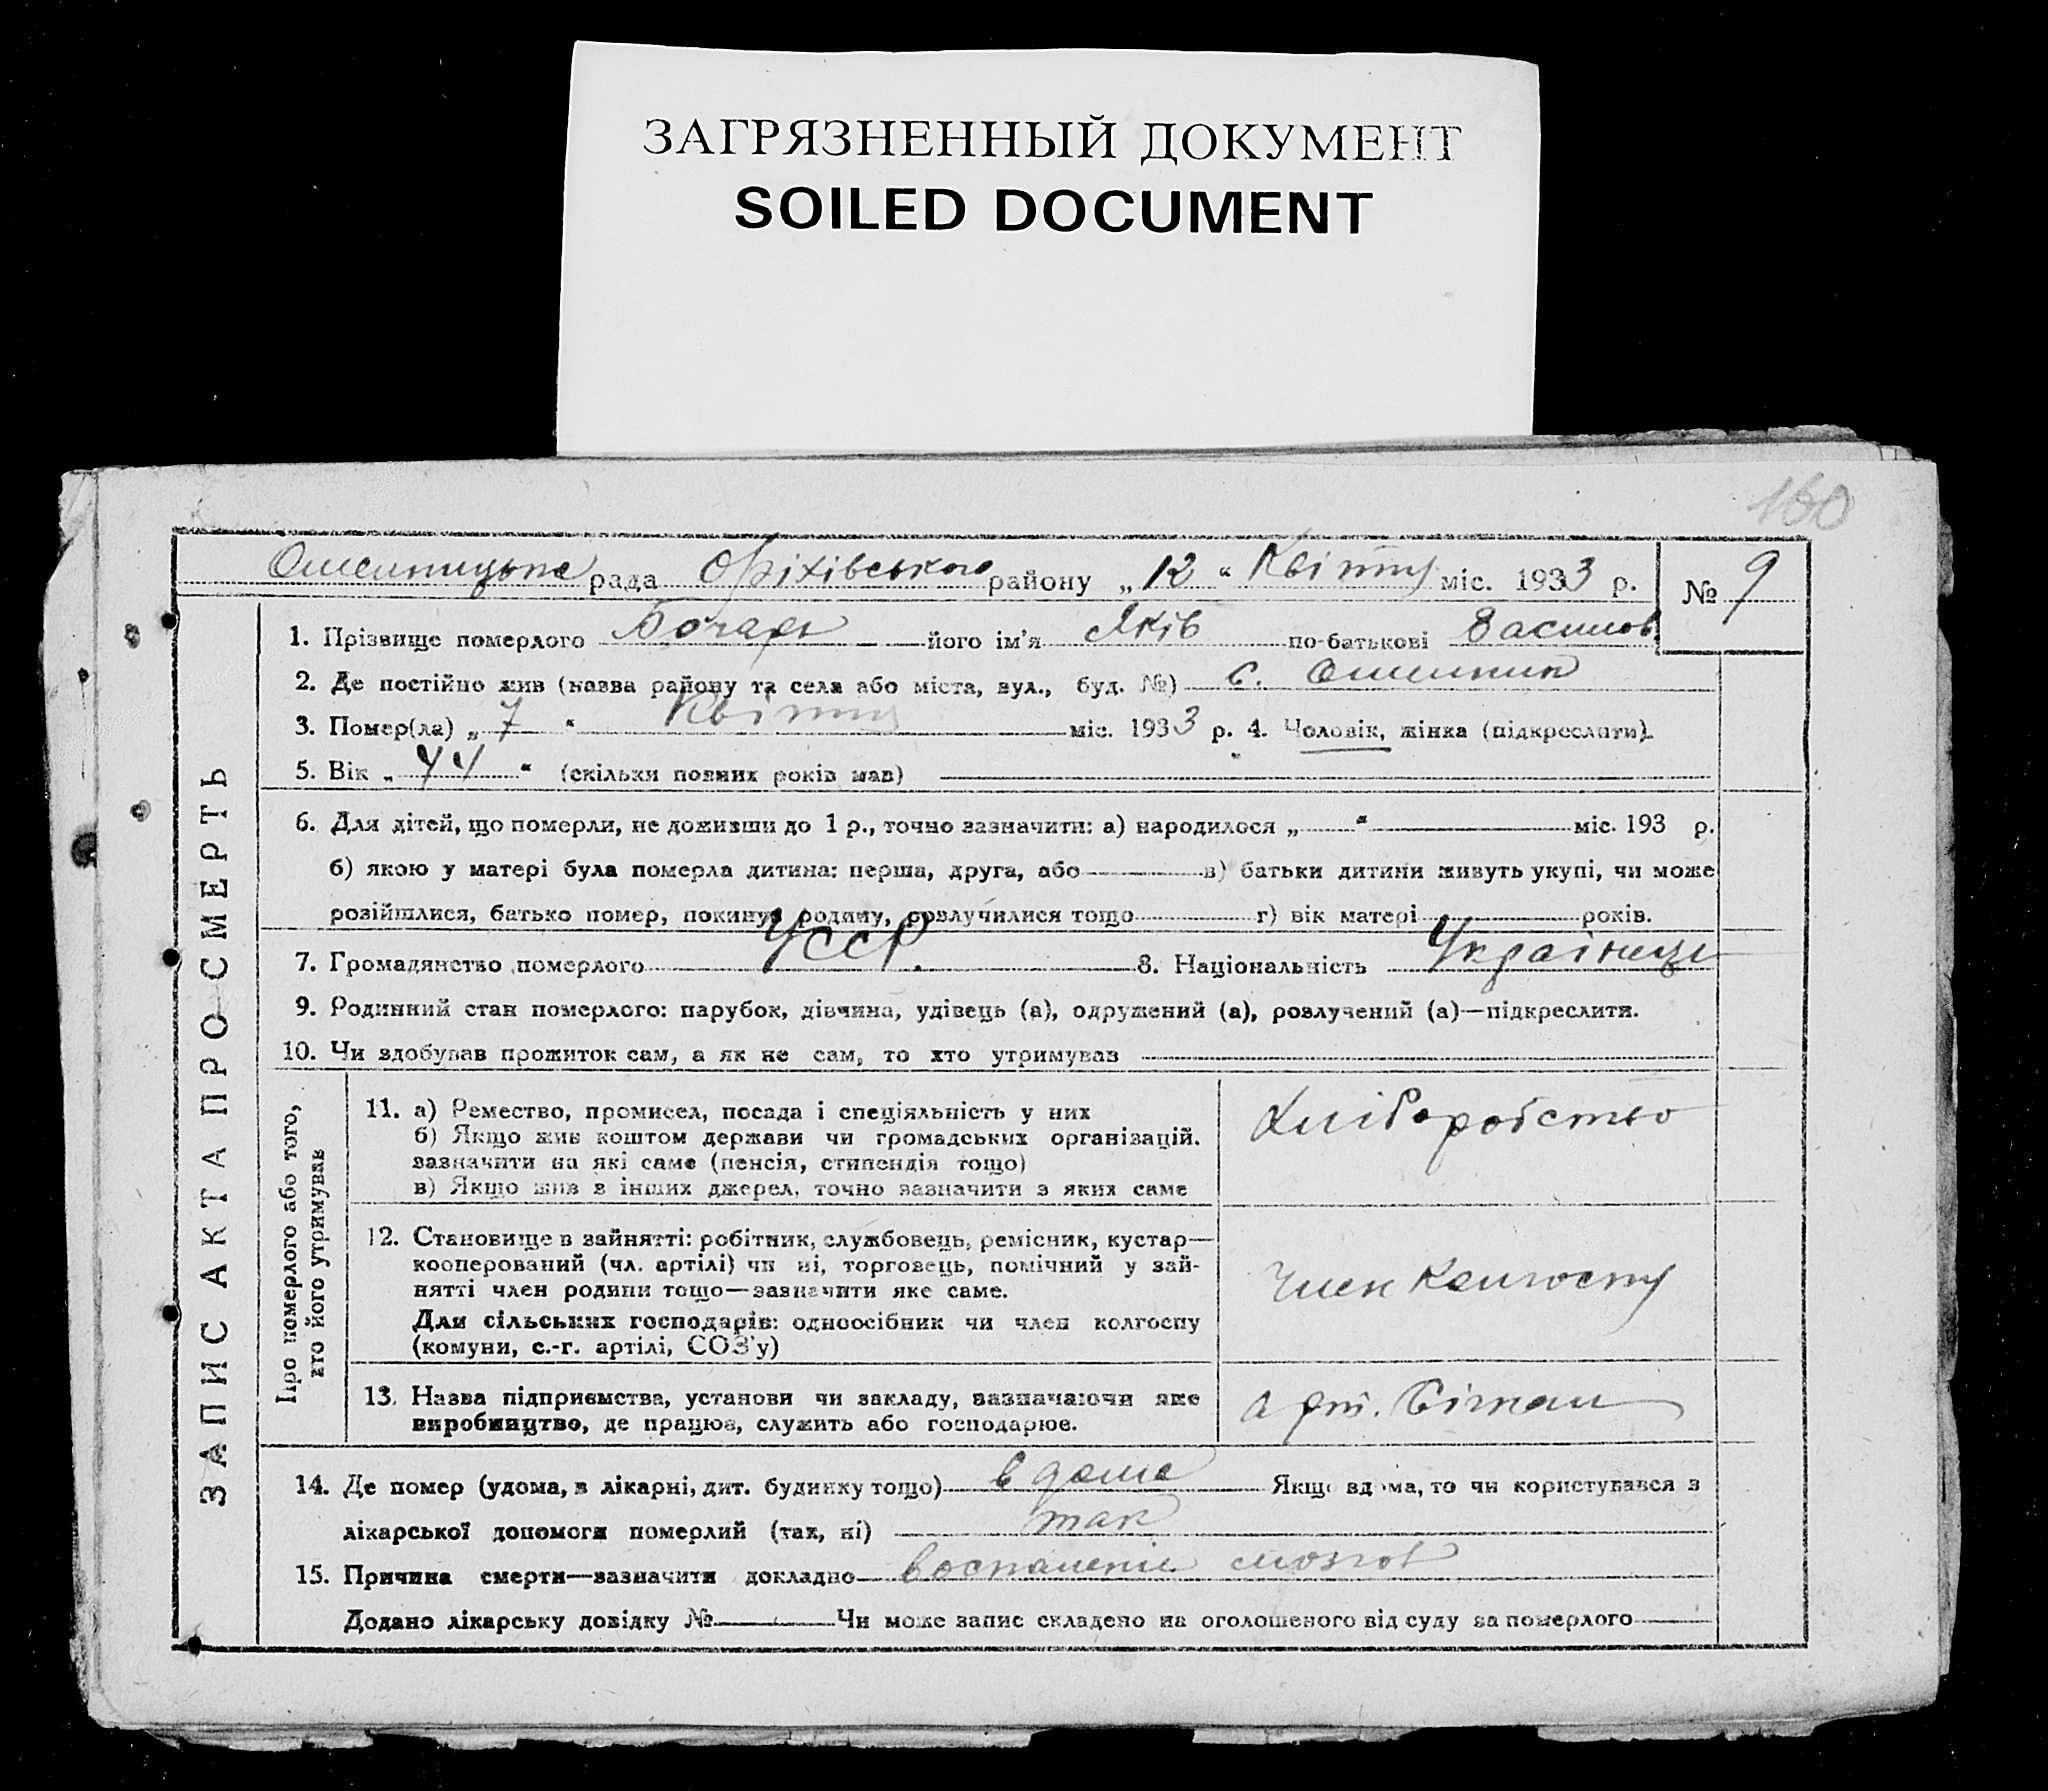 ЗАГРЯЗНЕННЫЙ ДОКУМЕНТ
SOILED DOCUMENT
160
рада Оріхівського району „12“ Квітня міс. 1933 р. № 9
ЗАПИС АКТА ПРО СМЕРТЬ
1. Прізвище померлого Бочарь його ім'я Яків по-батькові Васильов.
2. Де постійно жив (назва району та села або міста, вул., буд. №) с.
3. Помер(ла) „7“ Квітня міс. 1933 р. 4. Чоловік, жінка (підкреслити).
5. Вік „44“ (скільки повних років мав)
6. Для дітей, що померли, не доживши до 1 р., точно зазначити: а) народилося „ “ міс. 193 р.
б) якою у матері була померла дитина: перша, друга, або в) батьки дитини живуть укупі, чи може
розійшлися, батько помер, покинув родину, розлучилися тощо г) вік матері років.
7. Громадянство померлого УССР. 8. Національність Українець
9. Родинний стан померлого: парубок, дівчина, удівець (а), одружений (а), розлучений (а)—підкреслити.
10. Чи здобував прожиток сам, а як не сам, то хто утримував
Про померлого або того,
хто його утримував
11. а) Ремество, промисел, посада і спеціяльність у них
б) Якщо жив коштом держави чи громадських організацій.
зазначити на які саме (пенсія, стипендія тощо)
в) Якщо жив з інших джерел, точно зазначити з яких саме
Хліборобство
12. Становище в зайнятті: робітник, службовець, ремісник, кустар—
кооперований (чл. артілі) чи ні, торговець, помічний у зай-
нятті член родини тощо—зазначити яке саме.
Для сільських господарів: одноосібник чи член колгоспу
(комуни, с.-г. артілі, СОЗ'у)
Член колгоспу
13. Назва підприємства, установи чи закладу, зазначаючи яке
виробництво, де працює, служить або господарює.
арт.
14. Де помер (удома, в лікарні, дит. будинку тощо) в доме Якщо вдома, то чи користувався з
лікарської допомоги померлий (так, ні) так
15. Причина смерти—зазначити докладно воспаленіе мозгов
Додано лікарську довідку № Чи може запис складено на оголошеного від суду за померлого